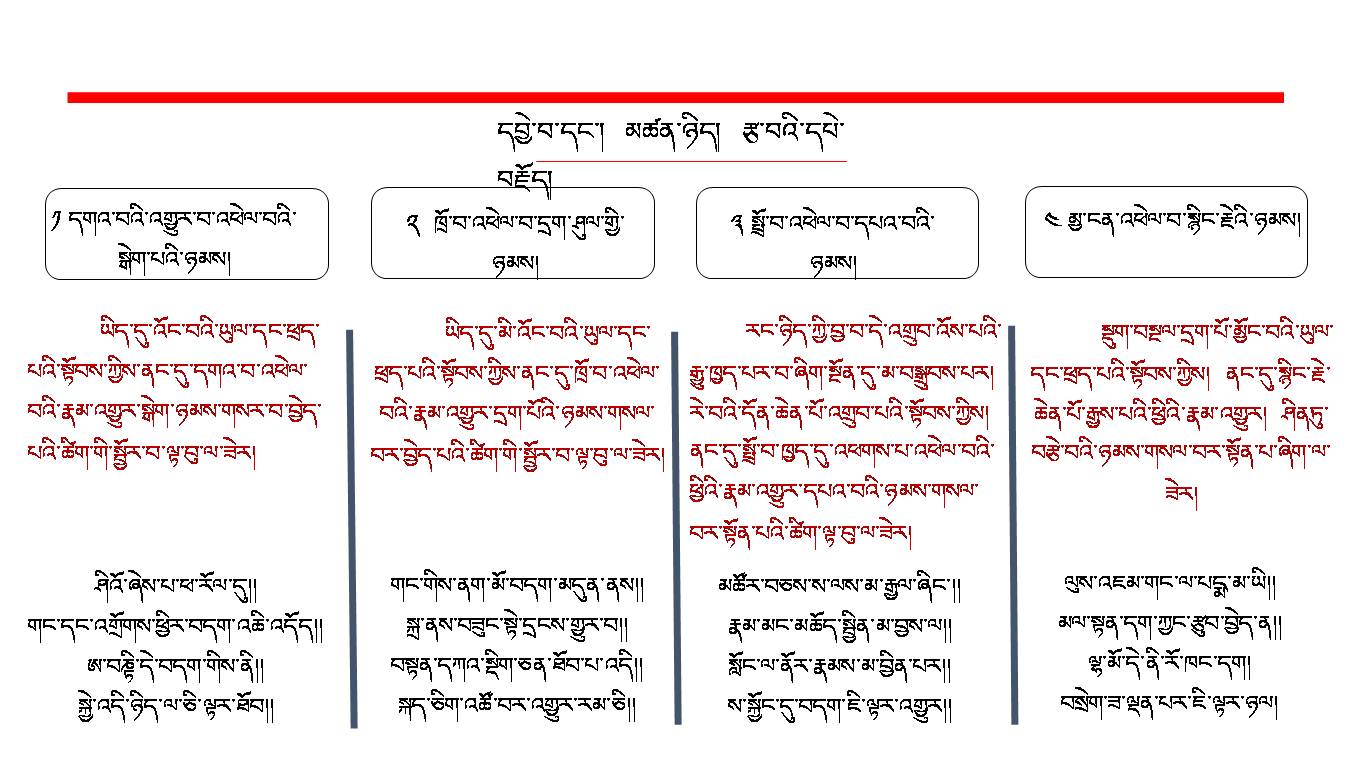 དབྱེ་བ་དང་། མཚན་ཉིད། རྩ་བའི་དཔེ་
བརྗོད།
༡ དགའ་བའི་འགྱུར་བ་འཕེལ་བའི་
སྒེག་པའི་ཉམས།
ཡིད་དུ་འོང་བའི་ཡུལ་དང་ཕྲད་
པའི་སྟོབས་ཀྱིས་ནང་དུ་དགའ་བ་འཕེལ་
བའི་རྣམ་འགྱུར་སྒེག་ཉམས་གསར་བ་བྱེད་
པའི་ཚིག་གི་སྦྱོར་བ་ལྟ་བུ་ལ་ཟེར།
ཤིའོ་ཞེས་པ་ཕ་རོལ་དུ།།
གང་དང་འགྲོགས་ཕྱིར་བདག་འཆི་འདོད།།
ཨ་བནྟི་དེ་བདག་གིས་ནི།།
སྐྱེ་འདི་ཉིད་ལ་ཅི་ལྟར་ཐོབ།།
༢ ཁྲོ་བ་འཕེལ་བ་དྲག་ཤུལ་གྱི་
ཉམས།
ཡིད་དུ་མི་འོང་བའི་ཡུལ་དང་
ཕྲད་པའི་སྟོབས་ཀྱིས་ནང་དུ་ཁྲོ་བ་འཕེལ་
བའི་རྣམ་འགྱུར་དྲག་པོའི་ཉམས་གསལ་
བར་བྱེད་པའི་ཚིག་གི་སྦྱོར་བ་ལྟ་བུ་ལ་ཟེར།
གང་གིས་ནག་མོ་བདག་མདུན་ནས།།
སྐྲ་ནས་བཟུང་སྟེ་དྲངས་གྱུར་བ།།
བསྟན་དཀའ་སྡིག་ཅན་ཐོབ་པ་འདི།།
སྐད་ཅིག་འཚོ་བར་འགྱུར་རམ་ཅི།།
༣ སྤྲོ་བ་འཕེལ་བ་དཔའ་བའི་
ཉམས།
རང་ཉིད་ཀྱི་བྱ་བ་དེ་འགྲུབ་འོས་པའི་
རྒྱུ་ཁྱད་པར་བ་ཞིག་སྔོན་དུ་མ་བསྒྲུབས་པར།
རེ་བའི་དོན་ཆེན་པོ་འགྲུབ་པའི་སྟོབས་ཀྱིས།
ནང་དུ་སྤྲོ་བ་ཁྱད་དུ་འཕགས་པ་འཕེལ་བའི་
ཕྱིའི་རྣམ་འགྱུར་དཔའ་བའི་ཉམས་གསལ་
བར་སྟོན་པའི་ཚིག་ལྟ་བུ་ལ་ཟེར།
མཚོར་བཅས་ས་ལས་མ་རྒྱལ་ཞིང་།།
རྣམ་མང་མཆོད་སྦྱིན་མ་བྱས་ལ།།
སློང་ལ་ནོར་རྣམས་མ་བྱིན་པར།།
ས་སྐྱོང་དུ་བདག་ཇི་ལྟར་འགྱུར།།
༤ མྱ་ངན་འཕེལ་བ་སྙིང་རྗེའི་ཉམས།
སྡུག་བསྔལ་དྲག་པོ་མྱོང་བའི་ཡུལ་
དང་ཕྲད་པའི་སྟོབས་ཀྱིས། ནང་དུ་སྙིང་རྗེ་
ཆེན་པོ་རྒྱས་པའི་ཕྱིའི་རྣམ་འགྱུར། ཤིནཏུ་
བརྩེ་བའི་ཉམས་གསལ་བར་སྟོན་པ་ཞིག་ལ་
ཟེར།
ལུས་འཇམ་གང་ལ་པདྨ་མ་ཡི།།
མལ་སྟན་དག་ཀྱང་རྩུབ་བྱེད་ན།།
ལྷ་མོ་དེ་ནི་རོ་ཁང་དག།
བསྲེག་ཟ་ལྡན་པར་ཇི་ལྟར་ཉལ།